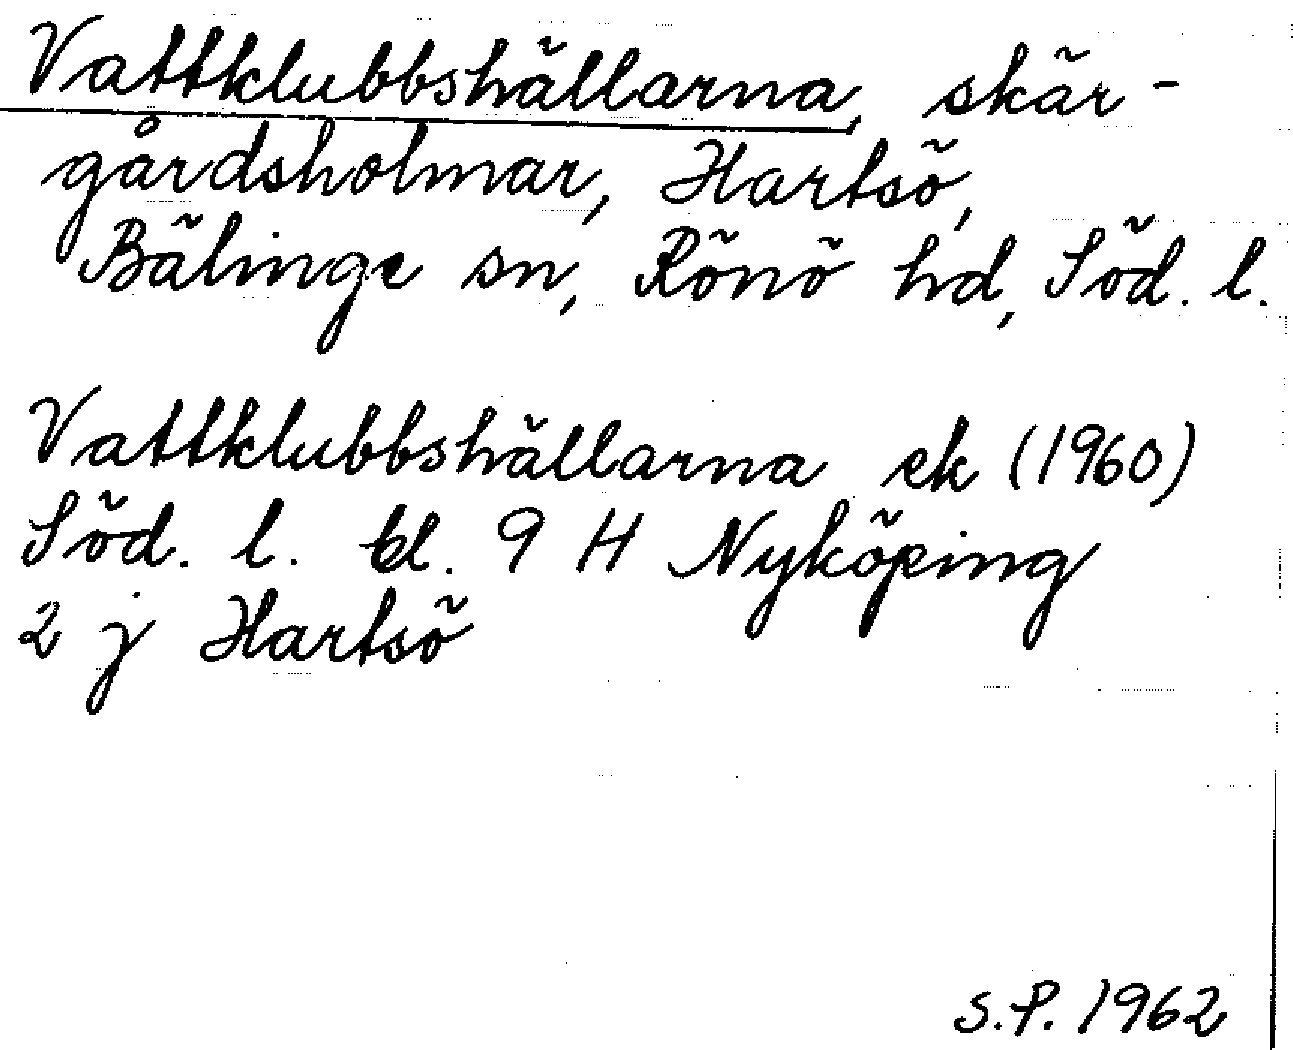 Vattklubbshällarna, skär-
gårdsholmar, Hartsö,
Bälinge sn, Rönö hd, Söd. l.
Vattklubbshällarna ek (1960)
Söd. l. bl. 9 H Nyköping
2 j Hartsö
S.P. 1962